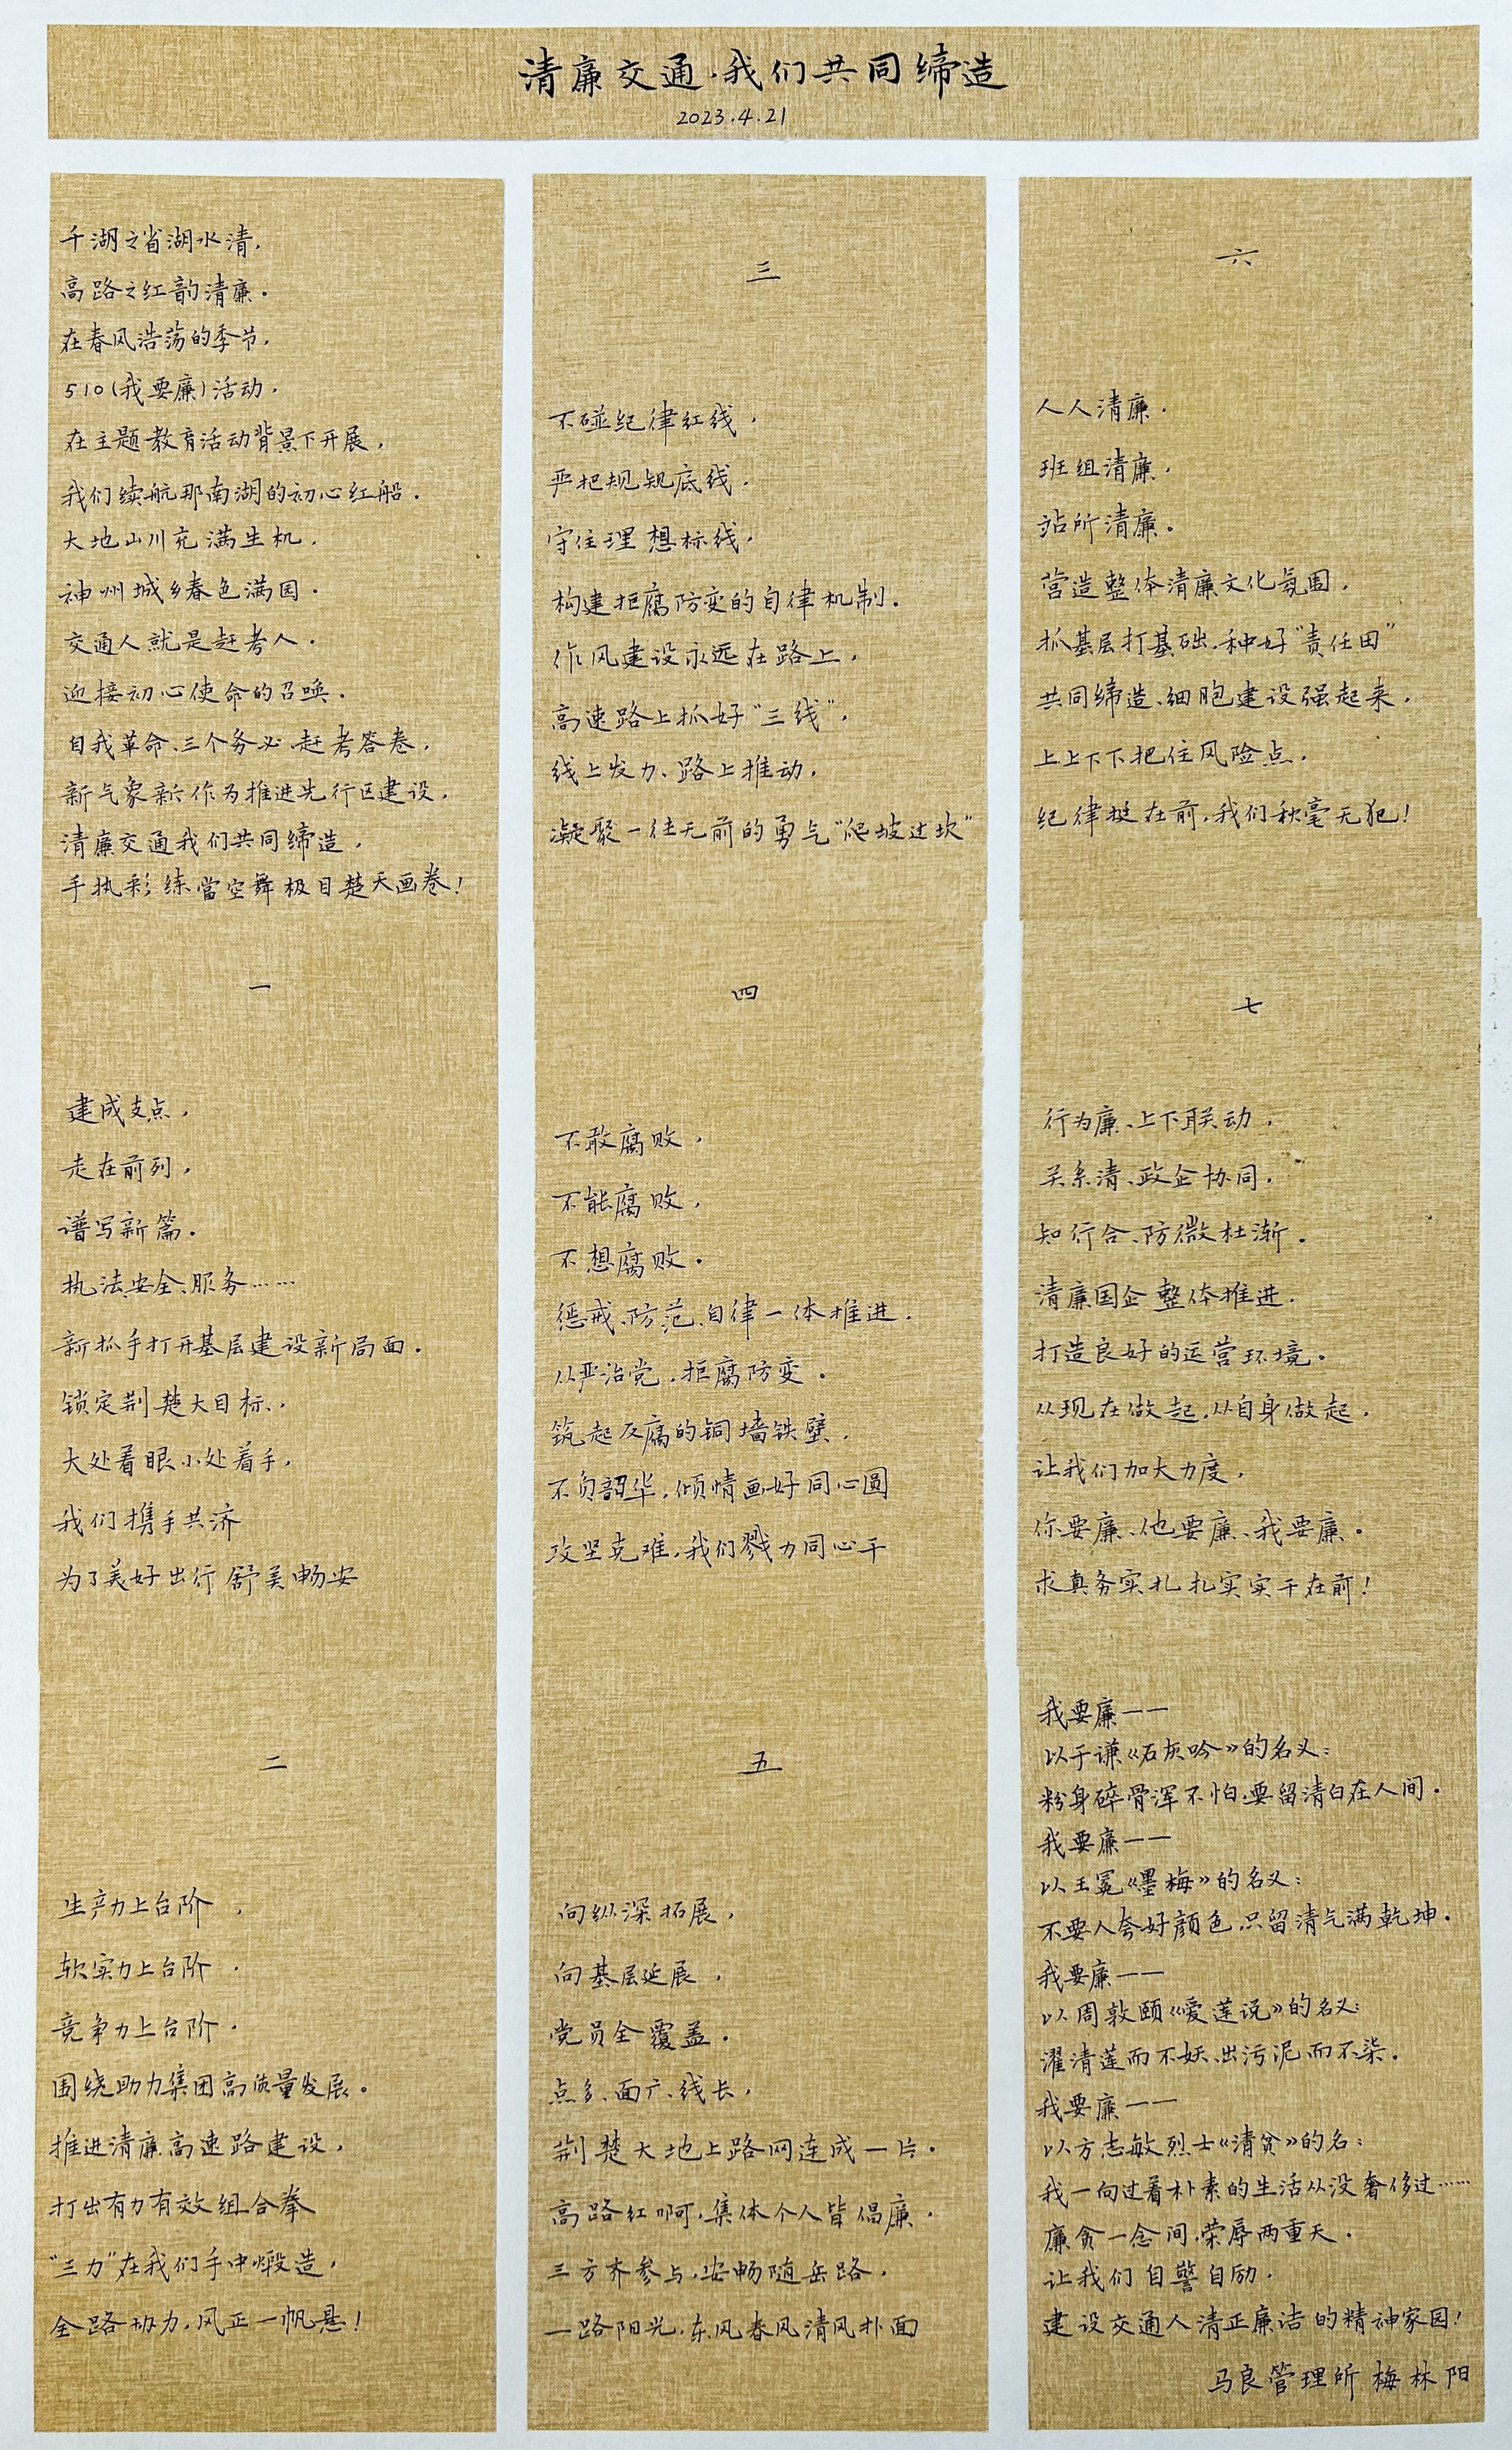 清廉交通·我们共同缔造
2023.4.21
千湖之省湖水清，
高路之红韵清廉.
在春风浩荡的季节，
510(我要廉)活动，
在主题教育活动背景下开展，
我们续航那南湖的初心红船.
大地山川充满生机，
神州城乡春色满园.
交通人就是赶考人.
迎接初心使命的召唤.
自我革命、三个务必、赶考答卷，
新气象新作为推进先行区建设，
清廉交通我们共同缔造，
手执彩练當空舞极目楚天画卷！
一
建成支点，
走在前列，
谱写新篇.
执法、安全、服务……
新抓手打开基层建设新局面.
锁定荆楚大目标，
大处着眼小处着手，
我们携手共济
为了美好出行舒美畅安
二
生产力上台阶，
软实力上台阶.
竞争力上台阶.
围绕助力集团高质量发展.
推进清廉高速路建设，
打出有力有效组合拳
“三力”在我们手中煅造，
全路协力，风正一帆悬！
三
不碰纪律红线，
严把规矩底线，
守住理想标线，
构建拒腐防变的自律机制.
作风建设永远在路上，
高速路上抓好“三线”，
线上发力、路上推动，
凝聚一往无前的勇气“爬坡过坎”
四
不敢腐败，
不能腐败，
不想腐败.
惩戒、防范、自律一体推进.
从严治党，拒腐防变.
筑起反腐的铜墙铁壁，
不负韶华，倾情画好同心圆
攻坚克难，我们戮力同心干
五
向纵深拓展，
向基层延展，
党员全覆盖.
点多、面广、线长，
荆楚大地上路网连成一片.
高路红啊，集体个人皆倡廉.
三方齐参与，安畅随岳路，
一路阳光，东风春风清风扑面
六
人人清廉.
班组清廉，
站所清廉.
营造整体清廉文化氛围，
抓基层打基础，种好“责任田”
共同缔造、细胞建设强起来，
上上下下把住风险点，
纪律挺在前，我们秋毫无犯！
七
行为廉、上下联动，
关系清、政企协同，
知行合、防微杜渐.
清廉国企整体推进.
打造良好的运营环境.
从现在做起，从自身做起，
让我们加大力度，
你要廉、他要廉、我要廉.
求真务实扎扎实实干在前！
我要廉——
以于谦《石灰吟》的名义：
粉身碎骨浑不怕，要留清白在人间.
我要廉——
以王冕《墨梅》的名义：
不要人夸好颜色，只留清气满乾坤.
我要廉——
以周敦颐《爱莲说》的名义：
濯清莲而不妖、出污泥而不染.
我要廉——
以方志敏烈士《清贫》的名：
我一向过着朴素的生活从没奢侈过……
廉贪一念间，荣辱两重天.
让我们自警自励，
建设交通人清正廉洁的精神家园！
马良管理所 梅林阳